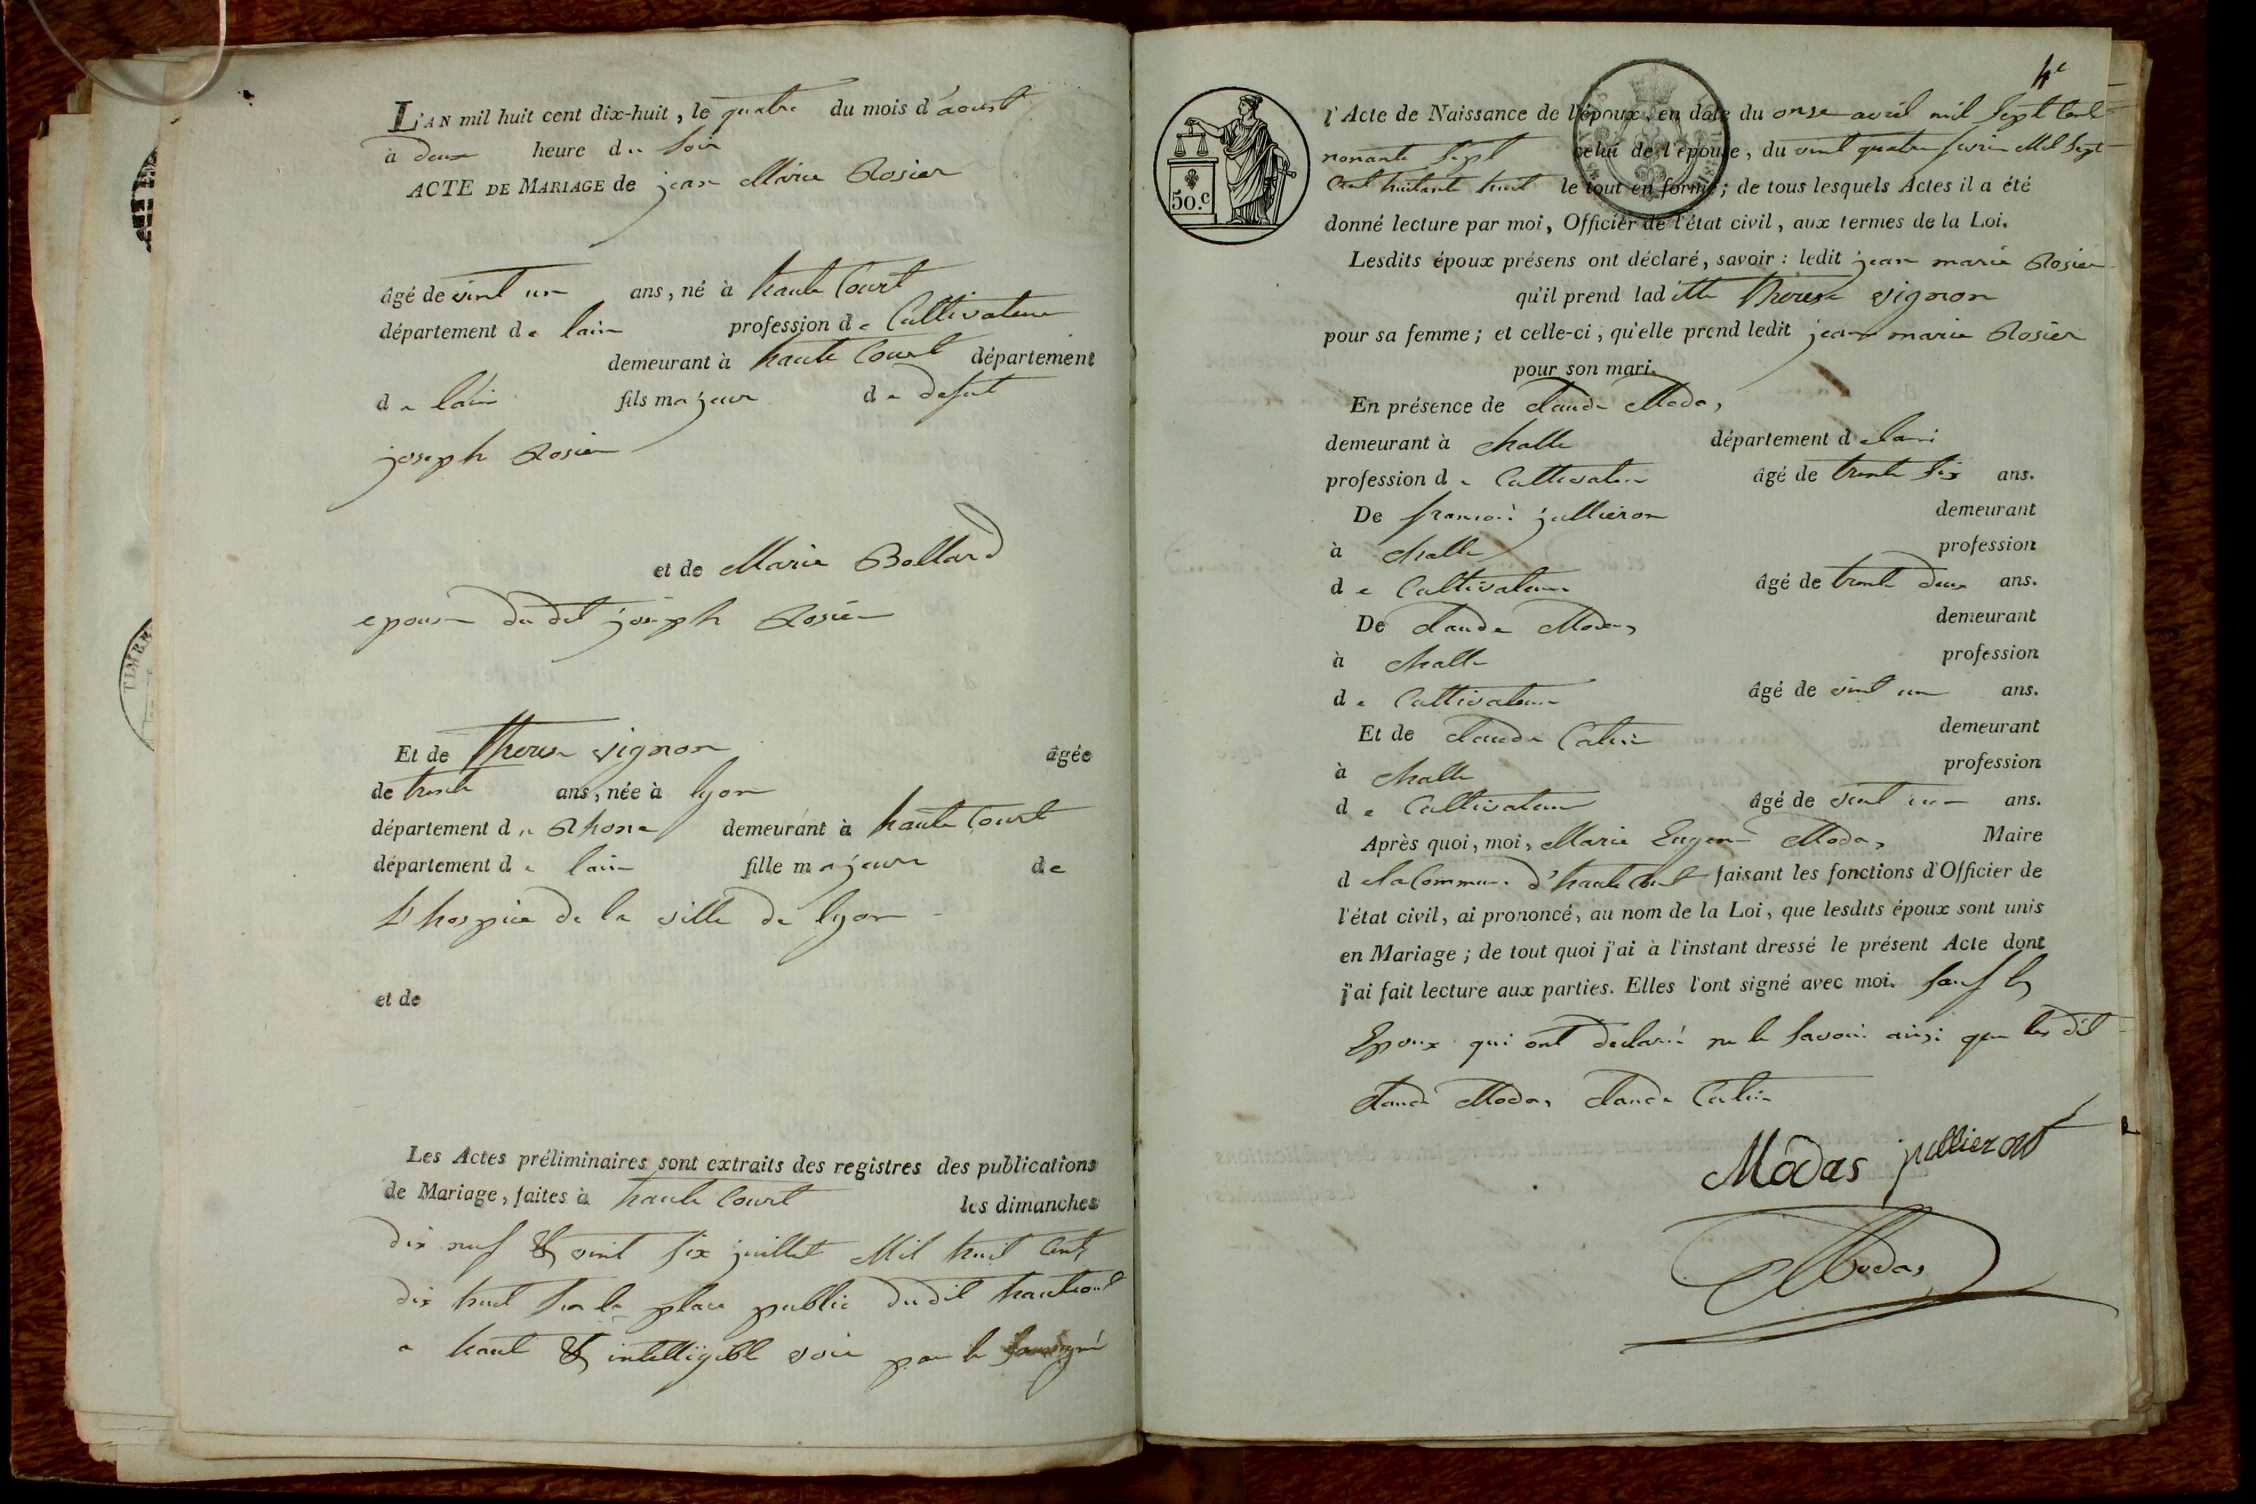 L'AN mil huit cent dix-huit, le quatre du mois d'aoust
à deux heure du soir
ACTE DE MARIAGE de jean Marie Rosier
âgé de vint un ans, né à haute Court
département de lain profession de Cultivateur
demeurant à haute Court département
de lain fils majeur de defunt
joseph Rosier
et de Marie Bollard
epouse du dit joseph Rosier
Et de therese vignon âgée
de trente ans, née à lyon
département du Rhone demeurant à haute Court
département de lain fille majeure de
l'hospice de la ville de lyon
et de
Les Actes préliminaires sont extraits des registres des publications
de Mariage, faites à haute Court les dimanches
dix neuf & vint six juillet Mil huit Cent
dix huit sur la place public dudit hautecourt
a haut & intelligible voix par le soussigné
4e
l'Acte de Naissance de l'époux, en date du onze avril mil sept Cent
nonante sept celui de l'épouse, du vint quatre fevrier Mil Sept
Cent huitante huit le tout en forme; de tous lesquels Actes il a été
donné lecture par moi, Officier de l'état civil, aux termes de la Loi.
50.c
Lesdits époux présens ont déclaré, savoir : ledit jean marie Rosier
qu'il prend laditte therese vignon
pour sa femme; et celle-ci, qu'elle prend ledit jean marie Rosier
pour son mari.
En présence de Claude Modas
demeurant à Challe département de lain
profession de Cultivateur âgé de trente six ans.
De francois jullieron demeurant
à Challe profession
de Cultivateur âgé de trente deux ans.
De Claude Modas demeurant
à Challe profession
de Cultivateur âgé de vint un ans.
Et de Claude Catin demeurant
à Challe profession
de Cultivateur âgé de vint un ans.
Après quoi, moi, Marie Eugene Modas Maire
de la Commune d'haute Court faisant les fonctions d'Officier de
l'état civil, ai prononcé, au nom de la Loi, que lesdits époux sont unis
en Mariage; de tout quoi j'ai à l'instant dressé le présent Acte dont
j'ai fait lecture aux parties. Elles l'ont signé avec moi. sauf les
Epoux qui ont declaré ne le savoir ainsi que les dit
Claude Modas Claude Catin
Modas jullieron
Modas
TIMBR